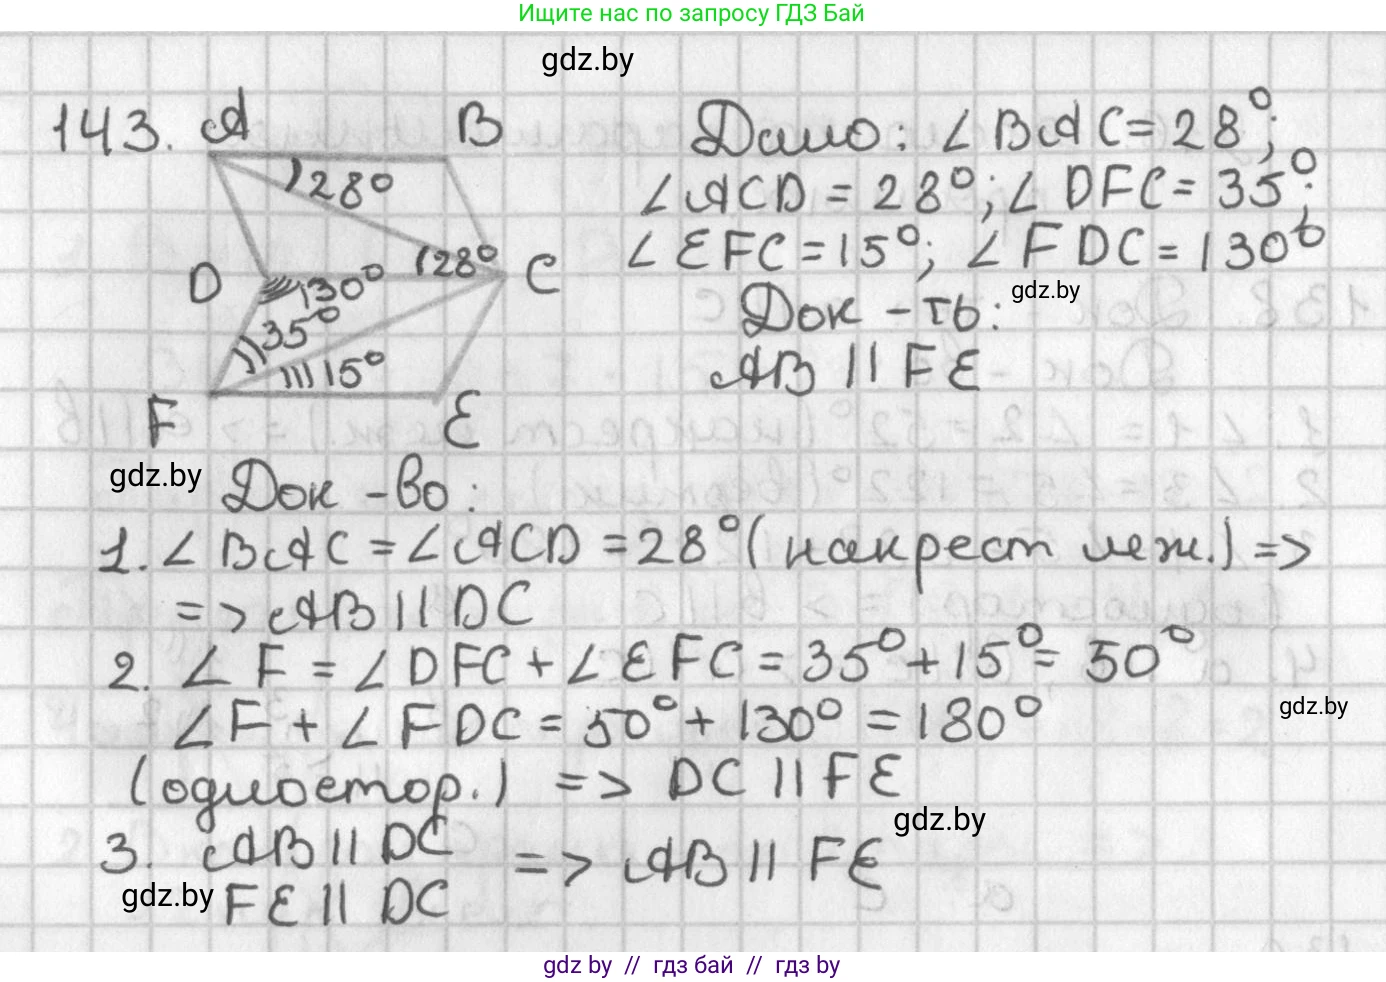 Ищите нас по запросу ГДЗ Бай
gdz.by
143. A B
28°
D 130° 128° C
35°
15°
F E
Дано: ∠BAC = 28°;
∠ACD = 28°; ∠DFC = 35°;
∠EFC = 15°; ∠FDC = 130°
gdz.by
Док-ть:
AB || FE
gdz.by
Док-во:
1. ∠BAC = ∠ACD = 28° (накрест леж.) =>
=> AB || DC
2. ∠F = ∠DFC + ∠EFC = 35° + 15° = 50°
gdz.by
∠F + ∠FDC = 50° + 130° = 180°
(одностор.) => DC || FE
gdz.by
3. AB || DC => AB || FE
gdz.by
FE || DC
gdz by // гдз бай // гдз by